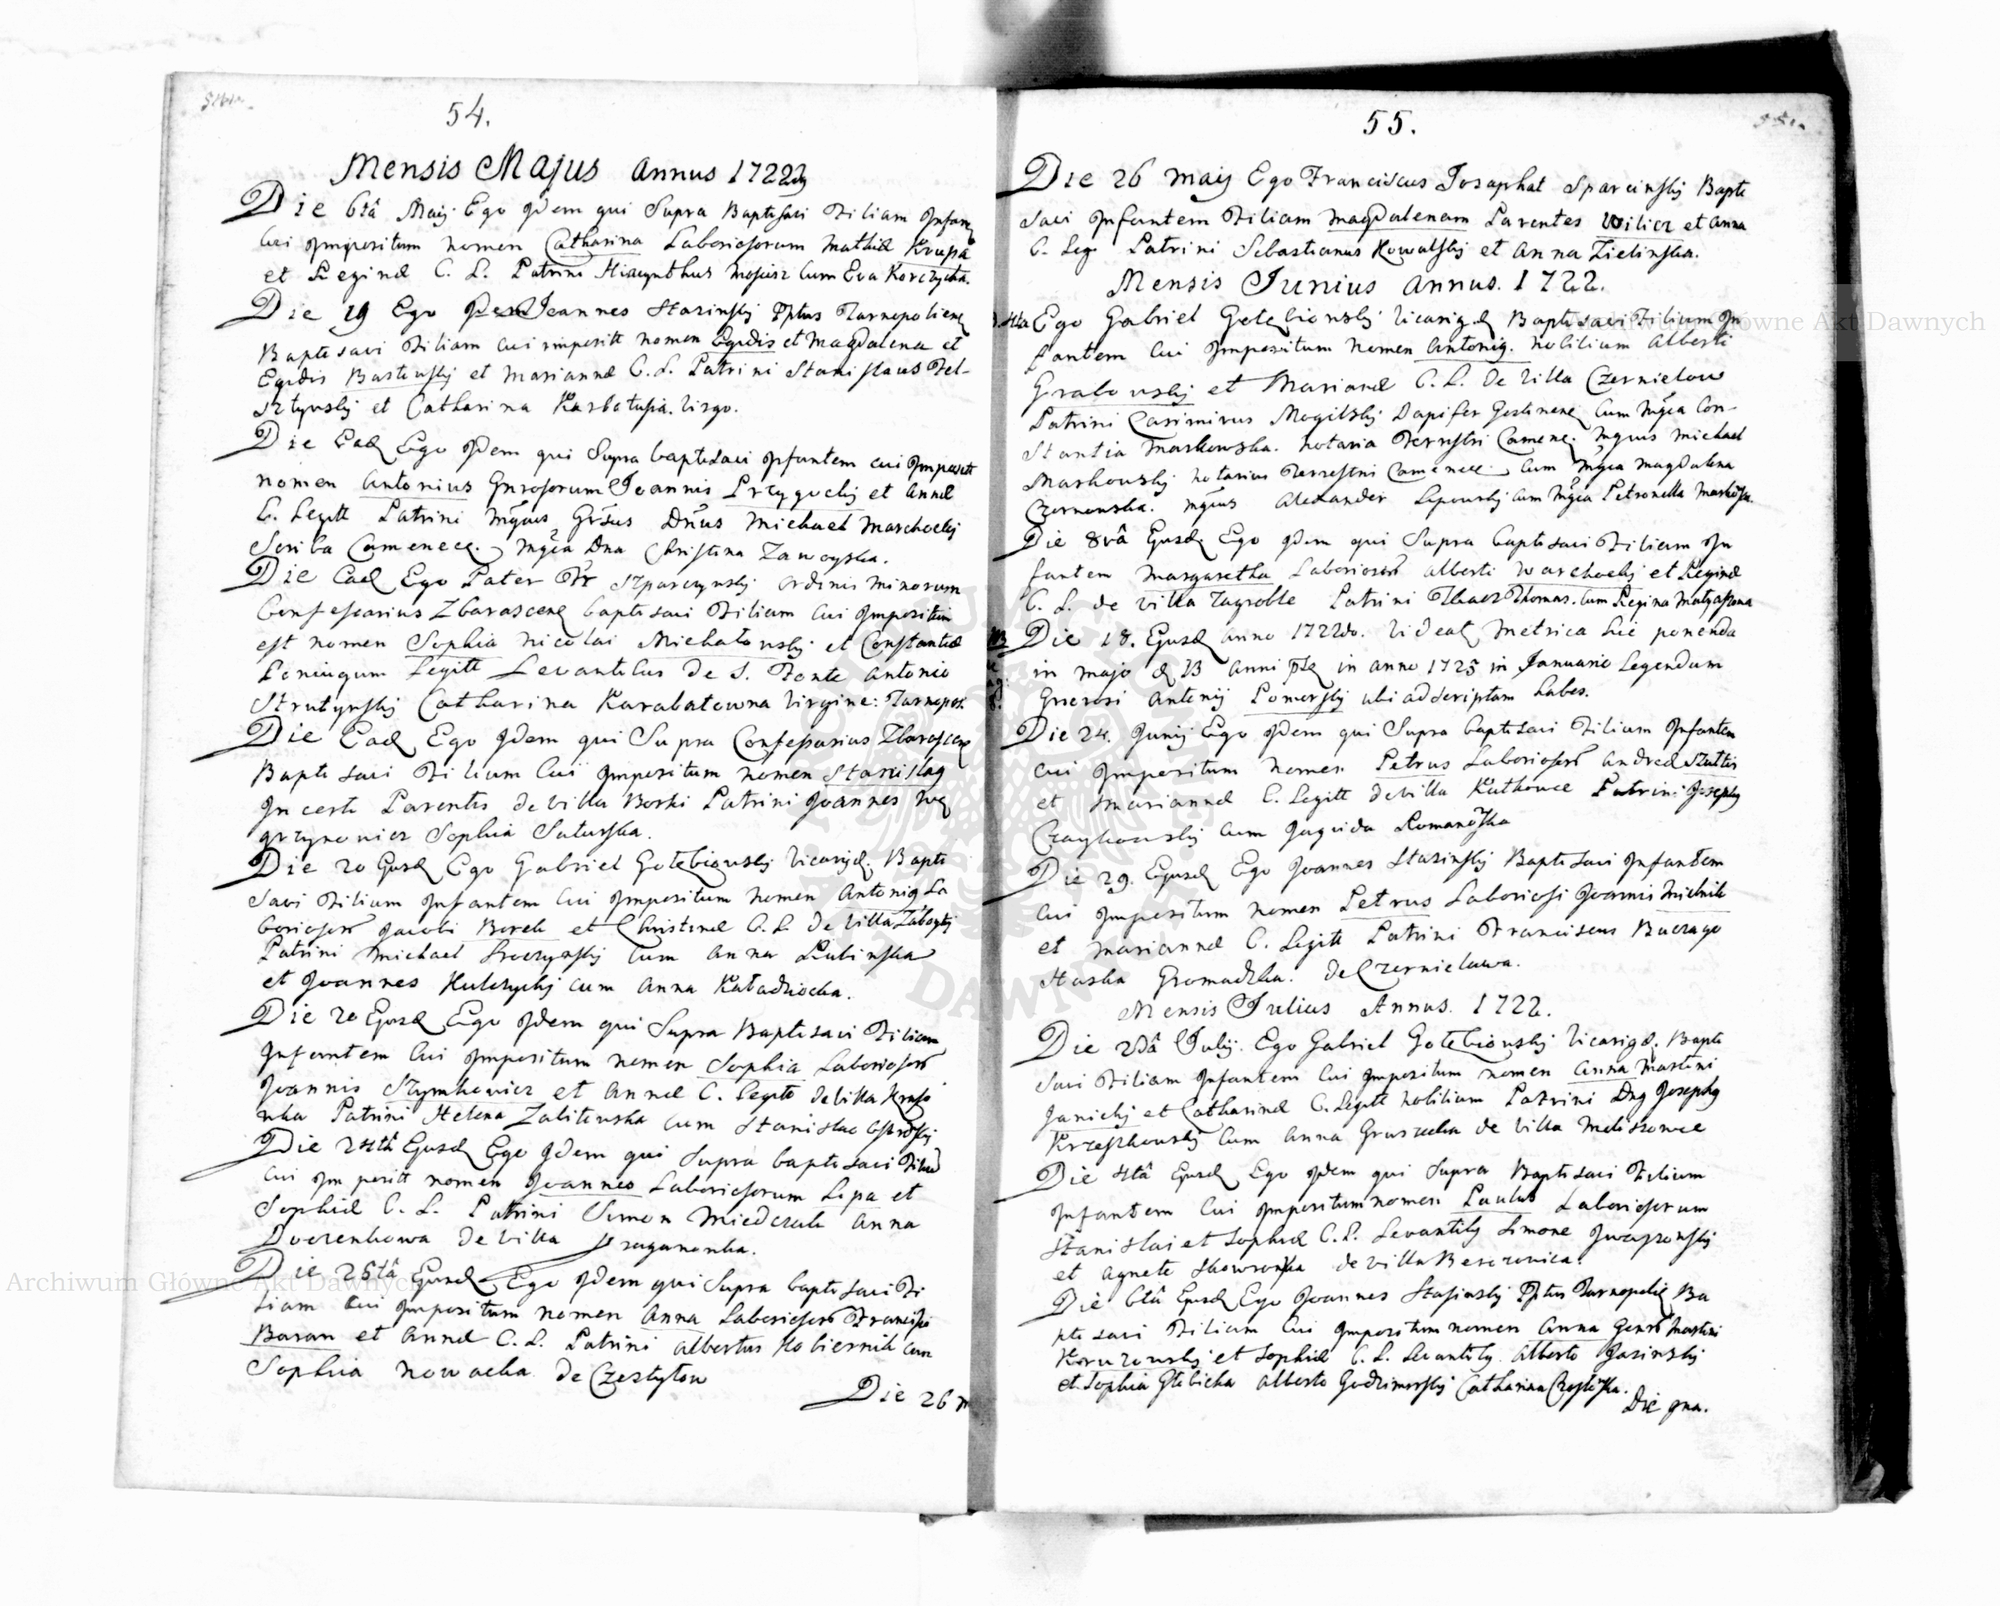 54.
Mensis Majus Annus 1722do
Die 6tâ Maij Ego Idem qui Supra Baptisavi Filiam Infan
cui Impositum nomen Catharina Laboriosorum Mathiæ Krupa
et Reginæ C. L. Patrini Hiacynthus Mosiusz Cum Eva Korczycka.
Die 19 Ego Joannes Stazinskij Tarnopoliens
Baptisavi Filiam cui imposit nomen Egidis et Magdalena et
Egidis et Mariannæ C. L. Patrini Stanislaus Fel-
sztynskij et Catharina Karbatusia Virgo.
Die Ead Ego Idem qui Supra baptisavi Infantem cui Imposit
nomen Antonius Gnrosorum Joannis Przygockij et Annæ
C. Legitt Patrini Mgnus Dnus Michael Marchockij
Scriba Camenece. Mgca Dna Christina Zawoyska.
Die Ead Ego Pater Fr Szparczynskij Ordinis Minorum
Confessarius Zbarascens baptisavi Filiam Cui Impositum
est nomen Sophia Nicolai Michałouskij et Constantiæ
Coniugum Legitt Levantibus de S. Fonte Antonio
Strutynskij Catharina Karabatowna Virgine: Tarnopol.
Die Ead Ego Idem qui Supra Confessarius Zbarascens
Baptisavi Filium Cui Impositum nomen Stanislaq
Incerti Parentis de Villa Borki Patrini Joannes We
grzynowicz Sophia
Die 20 Ejusd Ego Gabriel Gołebiouskij Vicariq. Bapti
Savi Filium Infantem Cui Impositum nomen Antoniq La
boriosor Jacobi Borek et Christinæ C. L. De Villa
Patrini Michael cum Anna Rubinska
et Joannes Kulczyckij cum Anna
Die 20 Ejusd Ego Idem qui Supra Baptisavi Filiam
Infantem Cui Impositum nomen Sophia Laboriosor
Joannis Szymkowicz et Annæ C. Legitt de Villa
Patrini Helena Zalitenska cum Stanislao
Die 24tâ Ejusd Ego Idem qui Supra baptisavi Filiu
cui Imposit nomen Joannes Laboriosorum Lipa et
Sophiæ C. L. Patrini Simon Miedczak Anna
Dverenkowa de Villa
Die 25tâ Ejusd Ego Idem qui Supra baptisavi Fi
liam cui Impositum nomen Anna Laboriosor Francisci
Baran et Annæ C. L. Patrini Albertus Kobiernik cum
Sophia Nowacka de Czestylow
Die 26 M
55.
Die 26 Maij Ego Franciscus Josaphat Sparcinskij Bapti
savi Infantem Filiam Magdalenam Parentes Wilicz et Anna
C. Leg Patrini Sebastianus Kowalskij et Anna Zielinska.
Mensis Junius Annus. 1722.
D. 4ta Ego Gabriel Gołębiouskij Vicariq Baptisavi Filium In
fantem Cui Impositum nomen Antoniq. Nobilium Alberti
Grabouskij et Mariannæ C. L. De Villa Czernielow
Patrini Casimirus Mogilskij Dapifer Cum Mgca Con-
stantia Markowska. Notaria Terrestri Camene. Mgnus Michael
Markouskij Notarius Terrestris Camenece. Cum Mgca Magdalena
Czernowska. Mgnus Alexander Lipouskij cum Mgca Petronella
Die 8vâ Ejusd Ego Idem qui Supra baptisavi Filiam In
fantem Margaretha Laboriosor Alberti Warchockij et Reginæ
C. L. de Villa Zagroble Patrini Thomas. Cum Regina Matyaszowa
Die 18. Ejusd Anno 1722do. Videat Metrica hic ponenda
in Majo Anni in Anno 1725 in Januario Legendum
Gnerosi Antonij Pomorskij ubi adscriptam habes.
Die 24. Junij Ego Idem qui Supra baptisavi Filium Infantem
cui Impositum nomen Petrus Laboriosor Andreæ
et Mariannæ C. Legitt de Villa Kutkowce Patrini Josephq
Czaykouskij cum Jagnida
Die 29. Ejusd Ego Joannes Stazinskij Baptisavi Infantem
cui Impositum nomen Petrus Laboriosi Joannis Mielnik
et Mariannæ C. Legitt Patrini Franciscus Buczago
Haska Gromadzka. de Czernielowa.
Mensis Julius Annus. 1722.
Die 2dâ Julij. Ego Gabriel Gołebiouskij Vicariq. Bapti
Savi Filiam Infantem Cui Impositum nomen Anna Martini
Janickij et Catharinæ C. Legitt Nobilium Patrini Dnq Josephq
Krzeszkouskij Cum Anna Gruszecka de Villa
Die 4tâ Ejusd Ego Idem qui Supra Baptisavi Filium
Infantem Cui Impositum nomen Paulus Laboriosorum
Stanislai et Sophiæ C. L. Levantibq Simone
et Agnete Skowronska de Villa Berezowica.
Die 6tâ Ejusd Ego Joannes Stasinskij Tarnopolis Ba
ptisavi Filiam Cui Impositum nomen Anna Martini
et Sophiæ C. L. Levantibq. Alberto Jasinskij
et Sophia Głebicka Alberto Catharina
Die 9na.
Archiwum Główne Akt Dawnych
Archiwum Główne Akt Dawnych